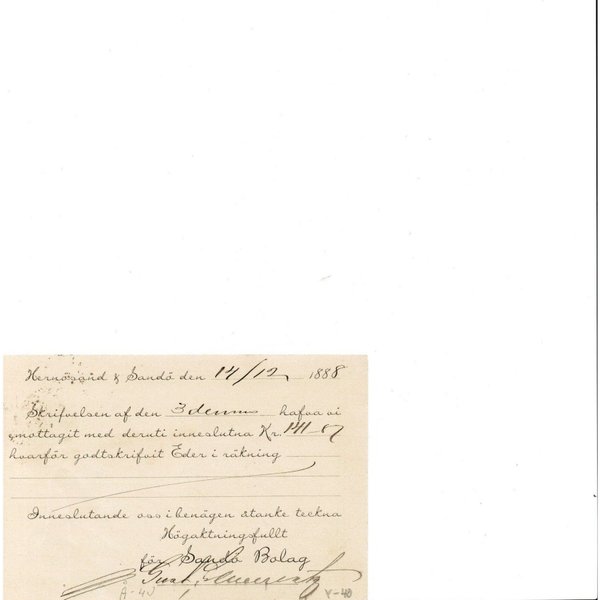 Hernösand & Sandö den 14/12 1888
Skrifvelsen af den 3 dennes hafva vi
emottagit med deruti inneslutna Kr. 141_07
hvarför godtskrifvit Eder i räkning
Inneslutande oss i benägen åtanke teckna
Högaktningsfullt
för Sandö Bolag
Gust.
A-40 V-40